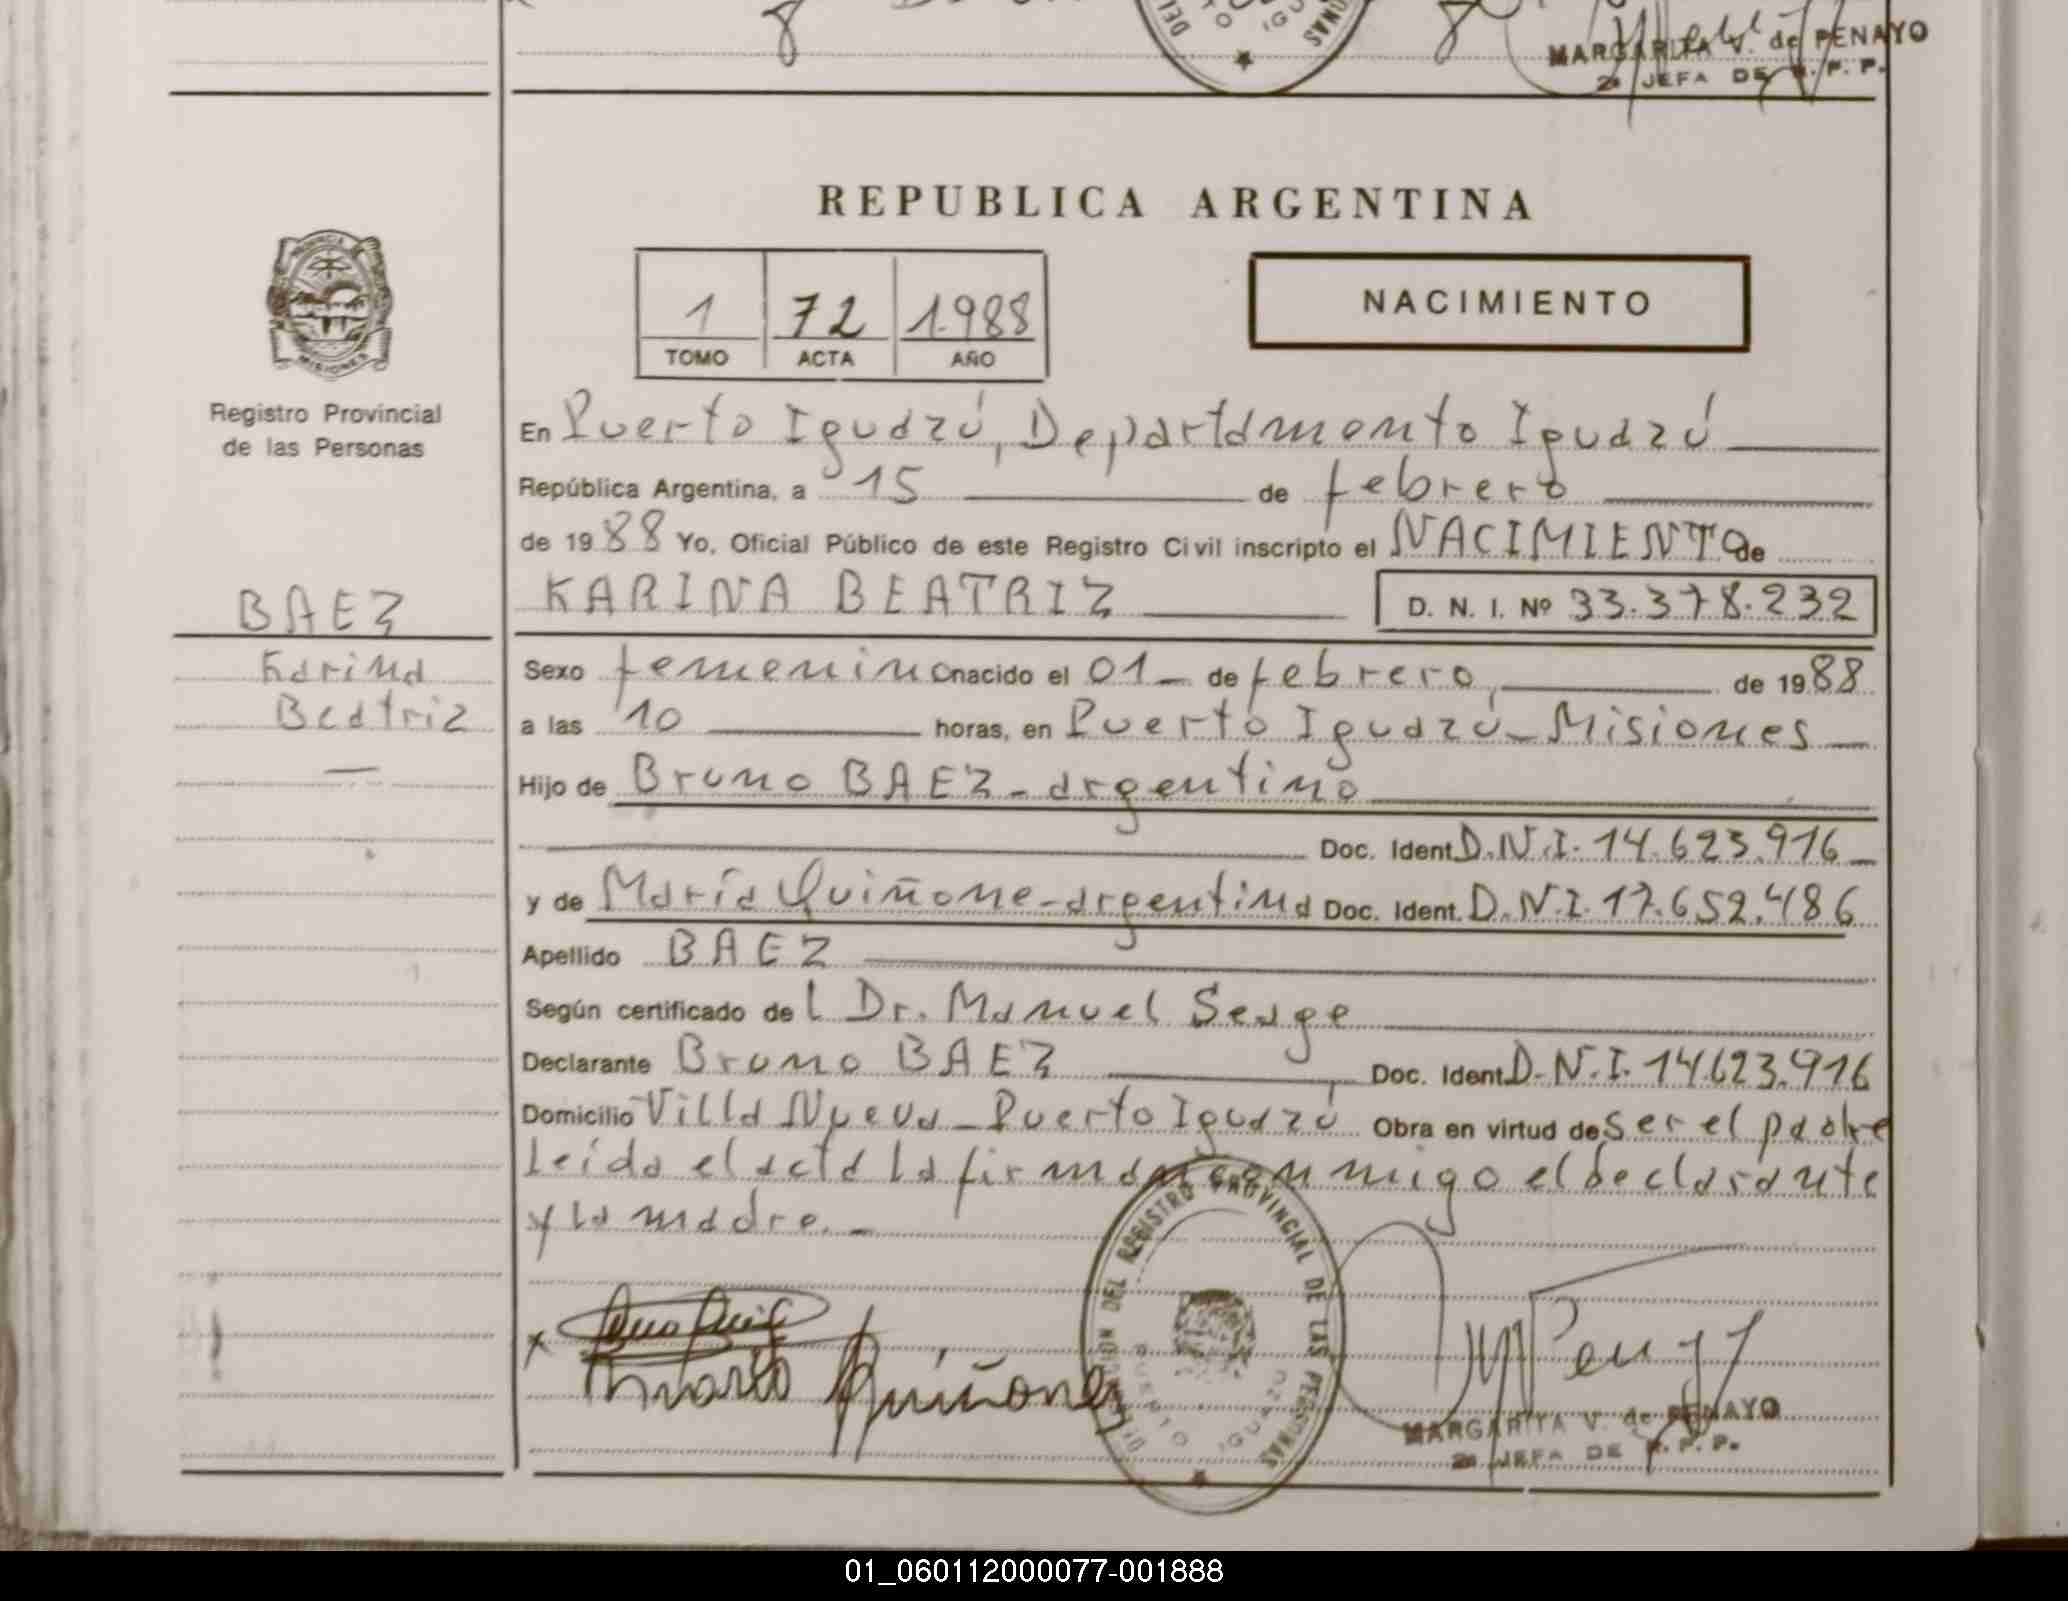 MARGARITA V. de PENAYO
2a JEFA DE R. P. P.
REPUBLICA ARGENTINA
PROVINCIA DE
MISIONES
Registro Provincial
de las Personas
1 72 1.988
TOMO ACTA AÑO
NACIMIENTO
En Puerto Iguazú, Departamento Iguazú
República Argentina, a 15 de febrero
de 1988 Yo, Oficial Público de este Registro Civil inscripto el NACIMIENTO de
KARINA BEATRIZ D. N. I. Nº 33.378.232
BAEZ
Karina
Beatriz
Sexo femenino nacido el 01 de febrero, de 1988
a las 10 horas, en Puerto Iguazú - Misiones
Hijo de Bruno BAEZ - argentino
Doc. Ident. D.N.I. 14.623.916
y de María Quiñone - argentina Doc. Ident. D.N.I. 17.652.486
Apellido BAEZ
Según certificado del Dr. Manuel Seage
Declarante Bruno BAEZ, Doc. Ident. D.N.I. 14.623.916
Domicilio Villa Nueva - Puerto Iguazú Obra en virtud de ser el padre
Leída el acta la firman conmigo el declarante
y la madre. -
x
Quiñones
DIRECCION DEL REGISTRO PROVINCIAL DE LAS PERSONAS
PUERTO IGUAZU
MARGARITA V. de PENAYO
2a JEFA DE R. P. P.
01_060112000077-001888